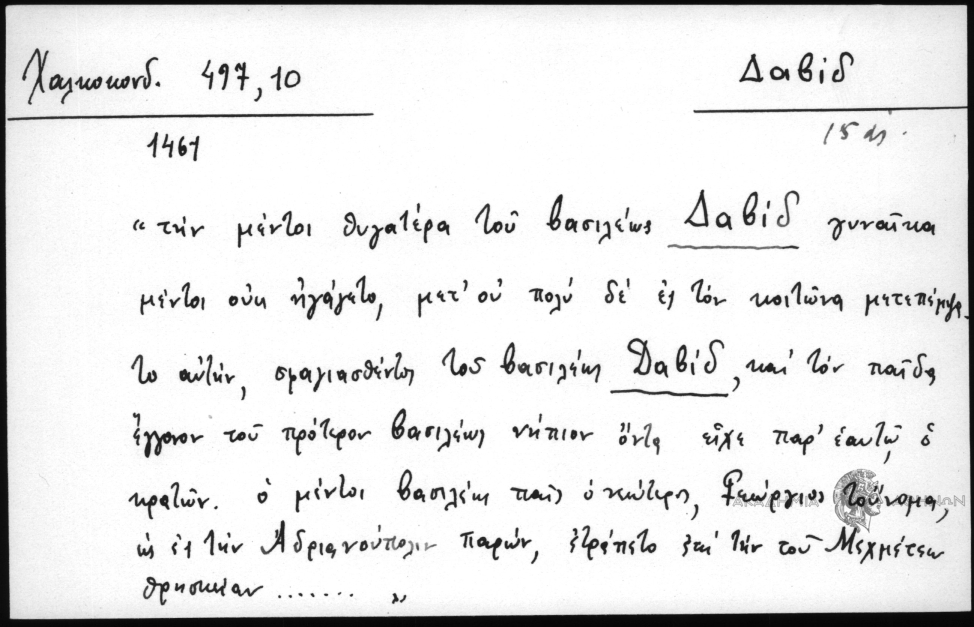 Χαλκοκονδ. 497,10
Δαβίδ
1461
15 αἰ.
" τὴν μέντοι θυγατέρα τοῦ βασιλέως Δαβίδ γυναῖκα
μέντοι οὐκ ἠγάγετο, μετ' οὐ πολὺ δὲ ἐς τὸν κοιτῶνα μετεπέμψα-
το αὐτήν, σφαγιασθέντος τοῦ βασιλέως Δαβίδ, καὶ τὸν παῖδα
ἔγγονον τοῦ πρότερον βασιλέως νήπιον ὄντα εἶχε παρ' ἑαυτῷ ὁ
κρατῶν. ὁ μέντοι βασιλέως παῖς ὁ νεώτερος, Γεώργιος τοὔνομα,
ὡς ἐς τὴν Ἀδριανούπολιν παρών, ἐτράπετο ἐπὶ τὴν τοῦ Μεχμέτεω
θρησκείαν ....... "
ΑΚΑΔΗΜΙΑ ΑΘΗΝΩΝ